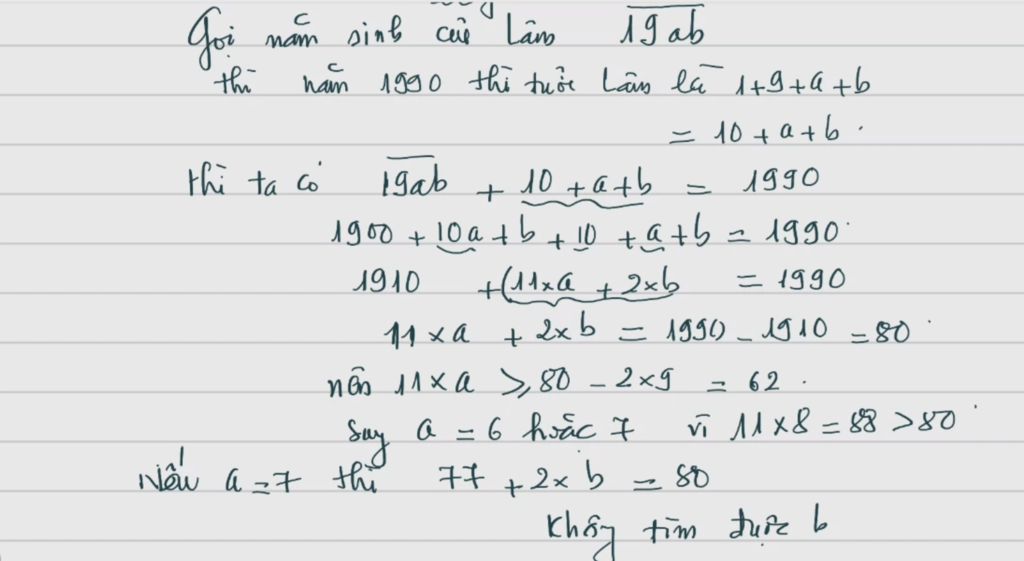 Gọi năm sinh của Lâm 19ab
thì năm 1990 thì tuổi Lâm là 1+9+a+b
= 10 + a + b .
thì ta có 19ab + 10 + a + b = 1990
1900 + 10a + b + 10 + a + b = 1990
1910 + (11×a + 2×b = 1990
11 × a + 2×b = 1990 - 1910 = 80
nên 11 × a ⩾ 80 - 2×9 = 62 .
suy a = 6 hoặc 7 vì 11×8 = 88 > 80
Nếu a = 7 thì 77 + 2× b = 80
Không tìm được b